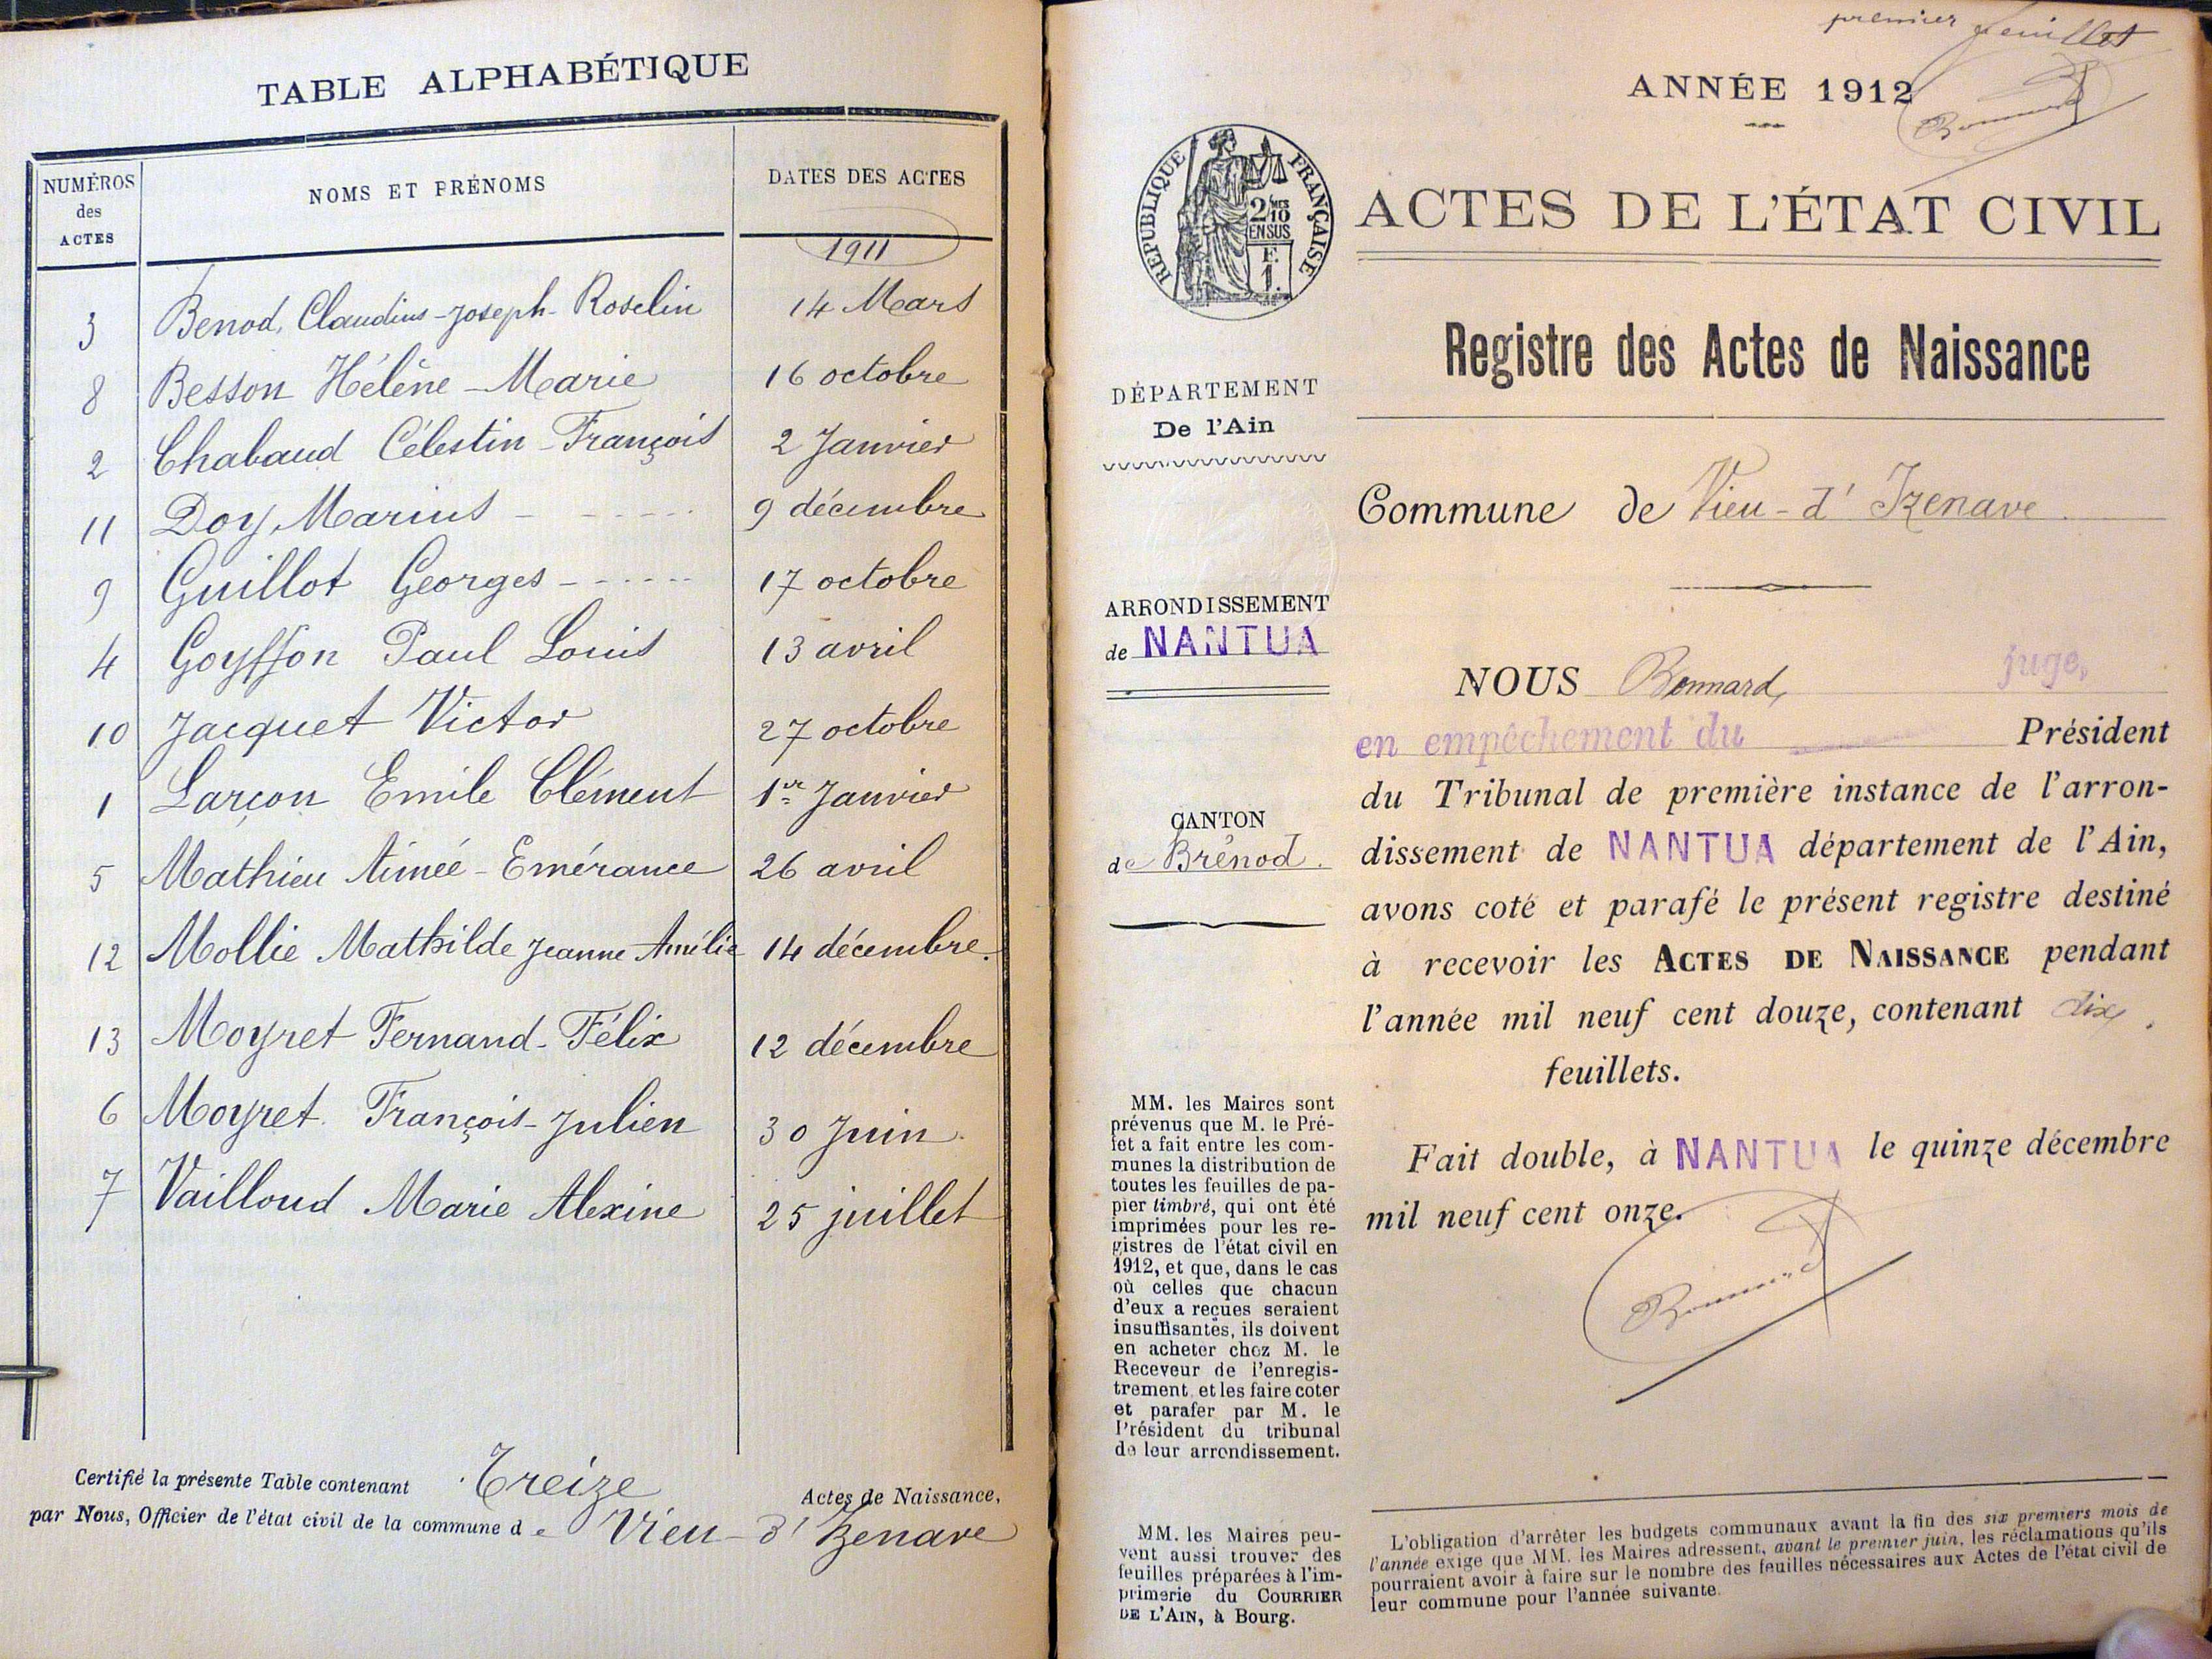 TABLE ALPHABÉTIQUE
NUMÉROS des ACTES
NOMS ET PRÉNOMS
DATES DES ACTES
1911
3 Benod, Claudius-Joseph-Roselin 14 Mars
8 Besson Hélène-Marie 16 octobre
2 Chabaud Célestin-François 2 Janvier
11 Doy, Marius 9 décembre
9 Guillot Georges 17 octobre
4 Goyffon Paul Louis 13 avril
10 Jacquet Victor 27 octobre
1 Larçon Emile Clément 1er Janvier
5 Mathieu Aimée-Emérance 26 avril
12 Mollie Mathilde Jeanne Amélie 14 décembre.
13 Moyret Fernand-Félix 12 décembre
6 Moyret François-Julien 30 Juin
7 Vailloud Marie Alexine 25 juillet
Certifié la présente Table contenant Treize Actes de Naissance,
par Nous, Officier de l'état civil de la commune de Vieu-d'Izenave
premier feuillet
ANNÉE 1912
Bonnard
RÉPUBLIQUE FRANÇAISE
2/10
EN SUS
F.
1.
ACTES DE L'ÉTAT CIVIL
Registre des Actes de Naissance
DÉPARTEMENT
De l'Ain
Commune de Vieu-d'Izenave
ARRONDISSEMENT
de NANTUA
CANTON
de Brénod.
NOUS Bonnard, juge,
en empêchement du Président
du Tribunal de première instance de l'arron-
dissement de NANTUA département de l'Ain,
avons coté et parafé le présent registre destiné
à recevoir les ACTES DE NAISSANCE pendant
l'année mil neuf cent douze, contenant dix
feuillets.
Fait double, à NANTUA le quinze décembre
mil neuf cent onze.
Bonnard
MM. les Maires sont
prévenus que M. le Pré-
fet a fait entre les com-
munes la distribution de
toutes les feuilles de pa-
pier timbré, qui ont été
imprimées pour les re-
gistres de l'état civil en
1912, et que, dans le cas
où celles que chacun
d'eux a reçues seraient
insuffisantes, ils doivent
en acheter chez M. le
Receveur de l'enregis-
trement et les faire coter
et parafer par M. le
Président du tribunal
de leur arrondissement.
MM. les Maires peu-
vent aussi trouver des
feuilles préparées à l'im-
primerie du COURRIER
DE L'AIN, à Bourg.
L'obligation d'arrêter les budgets communaux avant la fin des six premiers mois de
l'année exige que MM. les Maires adressent, avant le premier juin, les réclamations qu'ils
pourraient avoir à faire sur le nombre des feuilles nécessaires aux Actes de l'état civil de
leur commune pour l'année suivante.